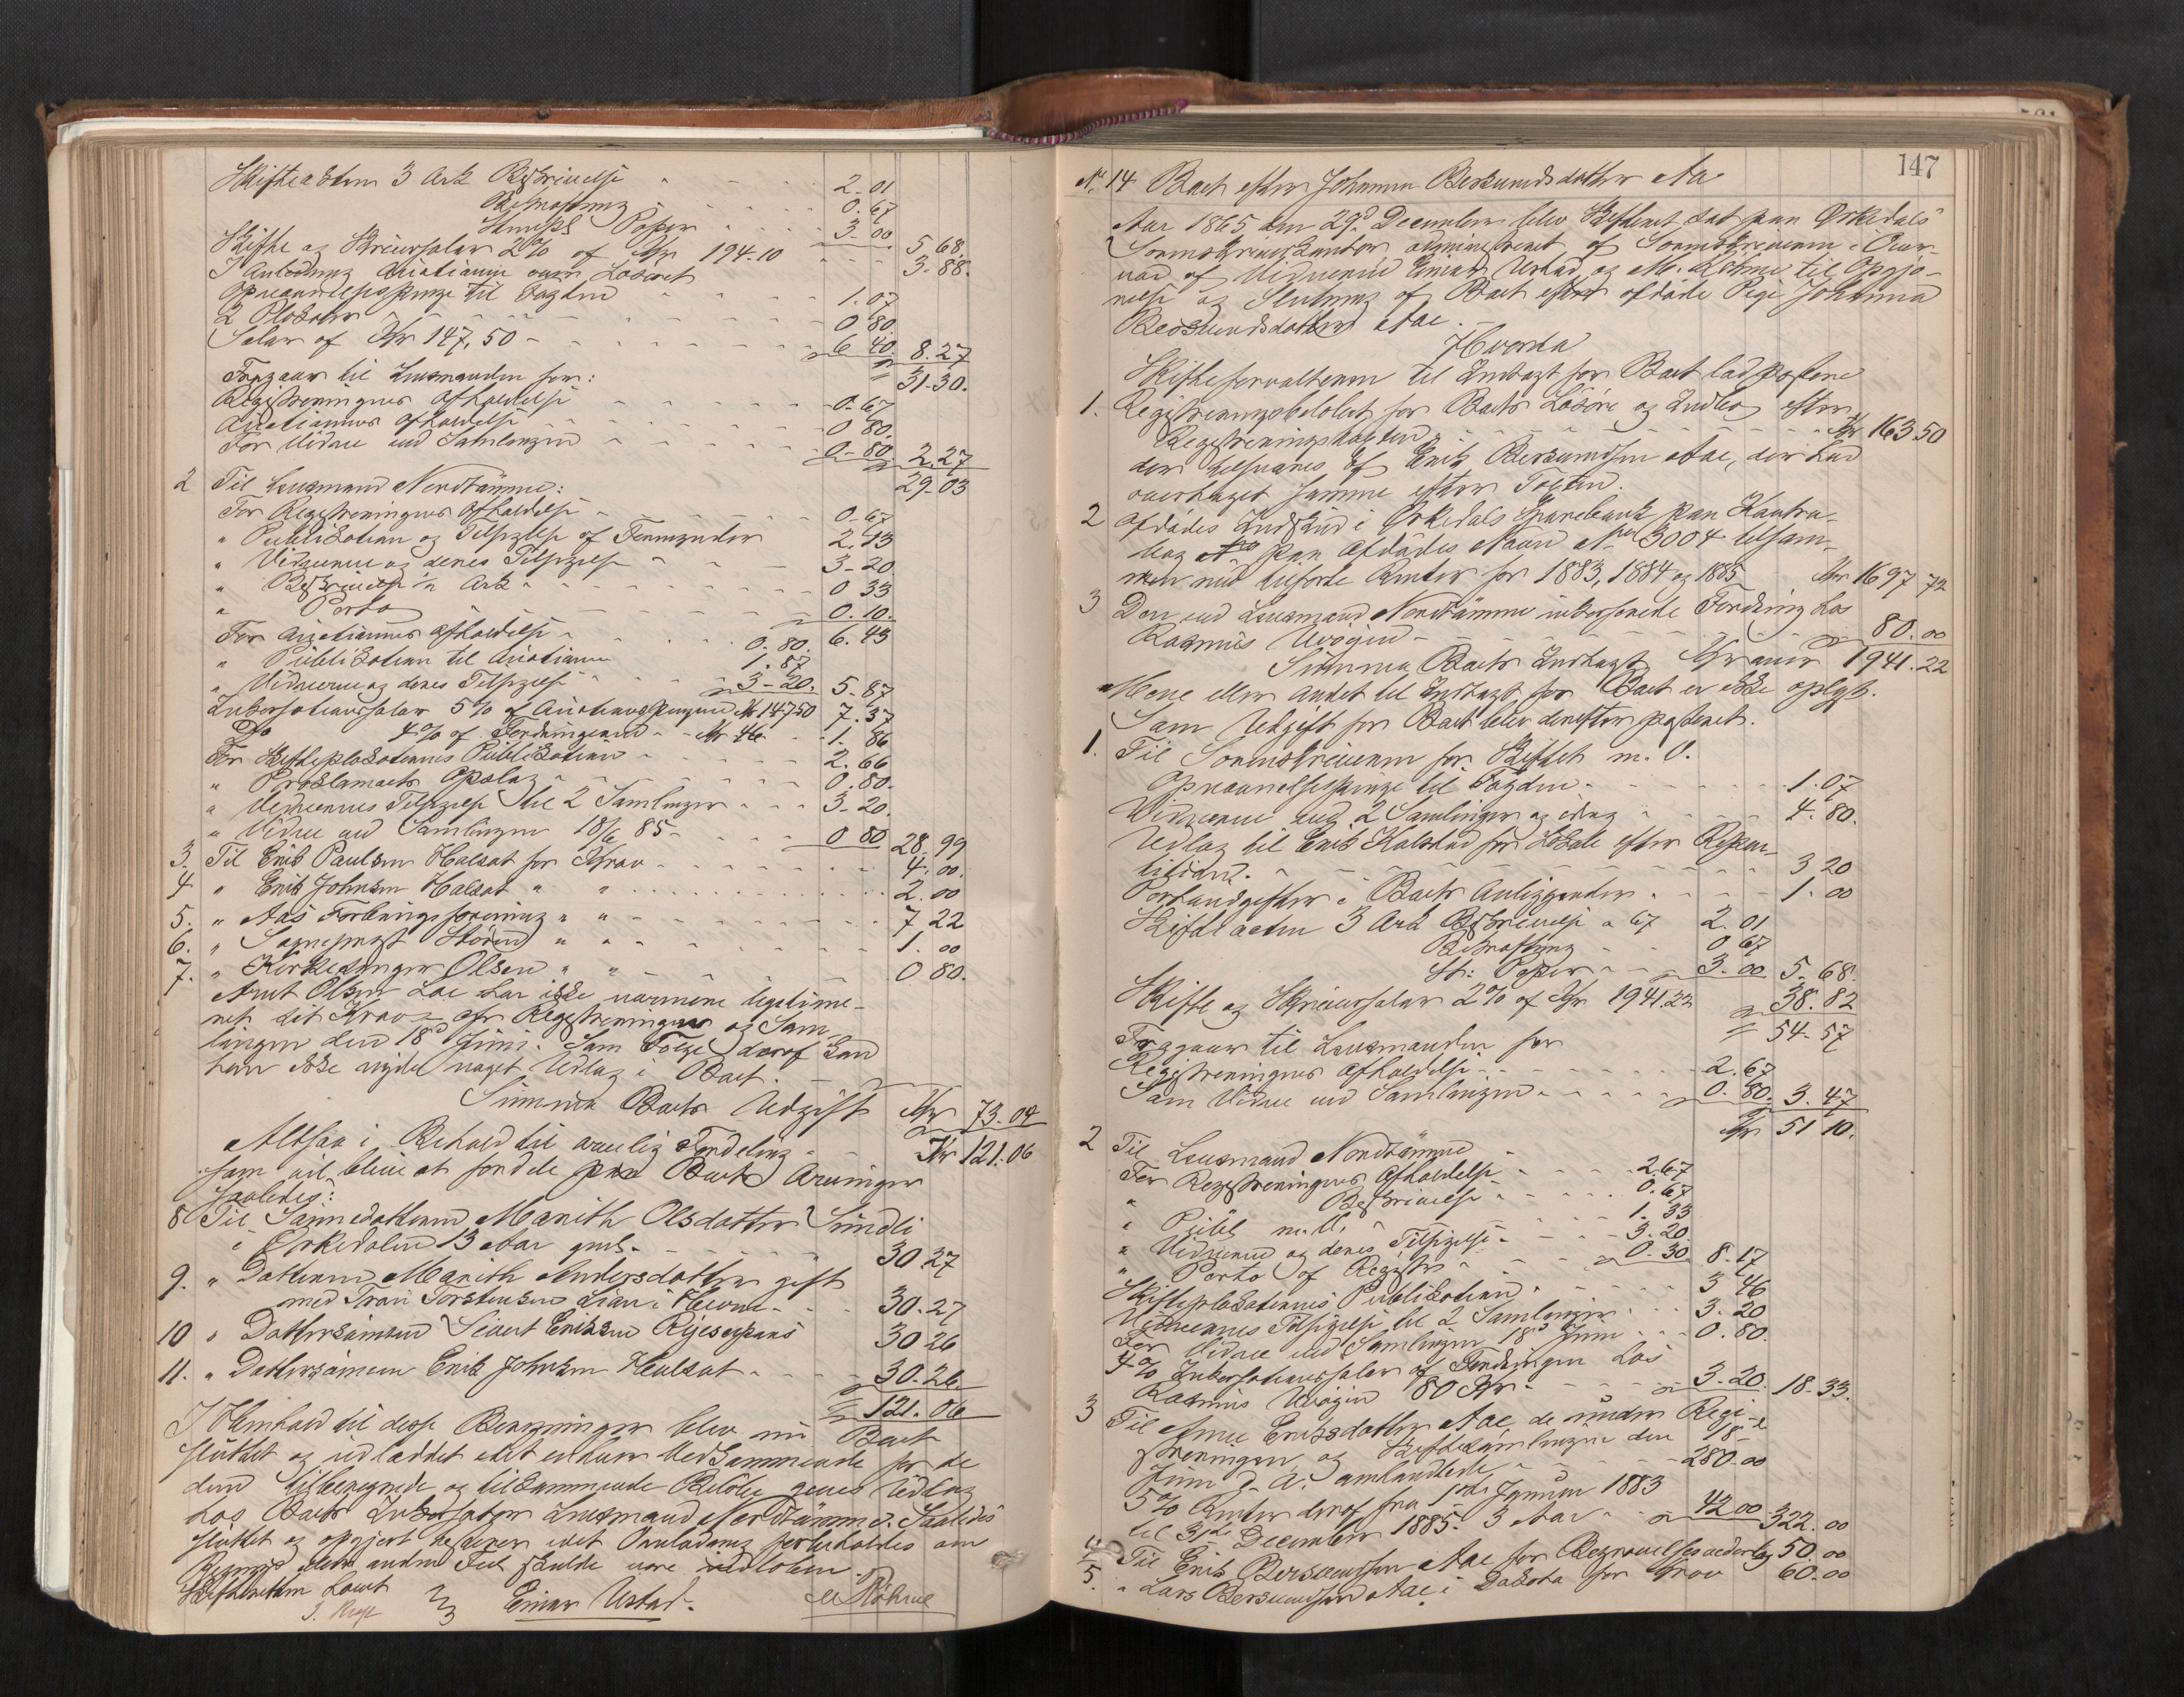 Skifteakten 3 Ark Beskrivelse 2.01
Bekræftning 0.67
Stempl. Papir 3.00 5.68.
Skifte og Skriversalær 2% af Kr 194.10 3.88.
I Anledning Auktionen over Løsøret
Opnævnelsespenge til Fogden 1.07
2 Plakater 0.80.
Salær af Kr 147,50 6 40. 8.27
31.30.
Fragaar til Lensmanden for:
Registreringens Afholdelse 0.67
Auktionens Afholdelse 0 80.
For Vidne ved Samlingen 0.80 2.27
29.03
2 Til Lensmand Nordtømme:
For Registreringens Afholdelse 0.67
" Publikation og Tilsigelse af 2.13
" Vidnerne og deres Tilsigelse 3-20
" Beskrivelse ½ Ark 0 33
" Porto 0.10.
For Auktionens Afholdelse 0.80. 6.43
" Publikation til Auktionen 1.87
" Vidnerne og deres Tilsigelse 3-20. 5-87
Inkassationssalær 5% af Auktionspengene Kr 147.50 7.37
Do 4% af Fordringerne Kr 46 1.86
For Skifteplakatens Publikation 2.66
" Proklamaets Opslag 0.80.
" Vidnernes Tilsigelse til 2 Samlinger 3-20.
" Vidne ved Samlingen 18/6 85 0 80 28.99
3. Til Erik Paulsen Halsat for Krav 4.00.
4 " Erik Johnsen Halsat " " 2.00
5. " Aas Forbrugsforening " " 7 22
6. " Sogneprest Stören " " 1.00
7. " Kirkesanger Olsen " " 0 80.
Arnt Olsen Loe har ikke nærmere legitime-
ret sit Krav efter Registreringen og Sam-
lingen den 18d Juni. Som Følge deraf kan
han ikke nyde noget Udlæg i Boet.
Summa Boets Udgift Kr 73.04
Altsaa i Behold til arvelig Fordeling Kr 121.06
som vil blive at fordele paa Boets Arvinger
saaledes:
8 Til Sønnedatteren Marith Olsdatter Sundli
i Orkedalen 13 Aar gml. 30.27
9. " Datteren Marith Andersdatter gift
med Torstensen Lian i Hevne 30.27
10 " Dattersønnen Sivert Eriksen 30 26
11. " Dattersønnen Erik Johnsen Halsat 30.26
121.06
I Henhold til disse Beregninger blev nu Boet
sluttet og udloddet idet enhver Vedkommende for de
dem tilberegnede og tilkommende Beløbe gives Udlæg
hos Boets Inkassator Lensmand Nordtømme. Saaledes
sluttet og opgjort hæveres idet Omladning forbeholdes om
Regnings eller anden Feil skulde være indløben.
Skifteretten Lovet
Einar Ustad. M Röhme
147
No 14 Boet efter Johanna Bersvendsdatter Aa
Aar 1865 den 29d December blev Skifteret sat paa Orkedals
Sorenskriverkontor administreret af Sorenskriveren i Over-
vær af Vidnerne Einar Ustad og M. Röhme til Opgjö-
relse og Slutning af Boet efter afdöde Pige Johanna
Bersvendsdatter Aae.
Hvorda
Skifteforvalteren til Indtægt for Boet lod postere
1. Registreringsbeløbet for Boets Løsøre og Indbo efter
Registreringsakten Kr 163 50
der tilsvares af Erik Bersvendsen Aae, der har
overtaget samme efter Taxten.
2 Afdödes Indskud i Orkedals Sparebank paa Kontra-
bog paa Afdödes Navn No 3004 tilsam-
men med tilførte Renter for 1883, 1884 og 1885 Kr 1697 72
3 Den ved Lensmand Nordtømme inkasserede Fordring hos
Rasmus 80.00
Summa Boets Indtægt Kroner 1941.22
Mere eller andet til Indtægt for Boet er ikke oplyst.
Som Udgift for Boet blev derefter posteret.
1. Til Sorenskriveren for Skiftet m. V.
Opnævnelsespenge til Fogden 1.07
Vidnerne ved 2 Samlinger og idag 4.80.
Udlæg til Erik Kalstad for Lokale efter Repar-
tition 3 20
Portoudgifter i Boets Anliggender 1.00
Skifteakten 3 Ark Beskrivelse a 67 2.01
Bekræftning 0 67
St: Papir 3.00. 5.68.
Skifte og Skriversalær 2% af Kr 1941.22 38.82
54-57
Fragaar til Lensmanden for
Registreringens Afholdelse 2.67
Som Vidne ved Samlingen 0.80. 3.47
Kr 51 10.
2 Til Lensmand Nordtømme
For Registreringens Afholdelse 2.67
" Beskrivelse 0.67
" Publ. m. V. 1.33
" Vidnerne og deres Tilsigelse 3.20.
" Porto af Registr. 0.30 8.17
Skifteplakatens Publikation 3 46
Vidnernes Tilsigelse til 2 Samlinger 3.20
For Vidne ved Samlingen 18d Juni 0.80.
4% Inkassationssalær af Fordringen hos
Rasmus 80 Kr. 3.20. 18.33.
3 Til Anne Eriksdatter Aae de under Regi-
streringen og Skiftesamlingen den 18d
Juni d. A. omhandlede 280.00
5% Renter deraf fra 1ste Januar 1883
til 31de December 1885. 3 Aar 42 00 322.00
4 Til Erik Bersvendsen Aae for Begravelsesudlæg 50.00
5. " Lars Bersvendsen Aae i Dakota for Krav 60.00